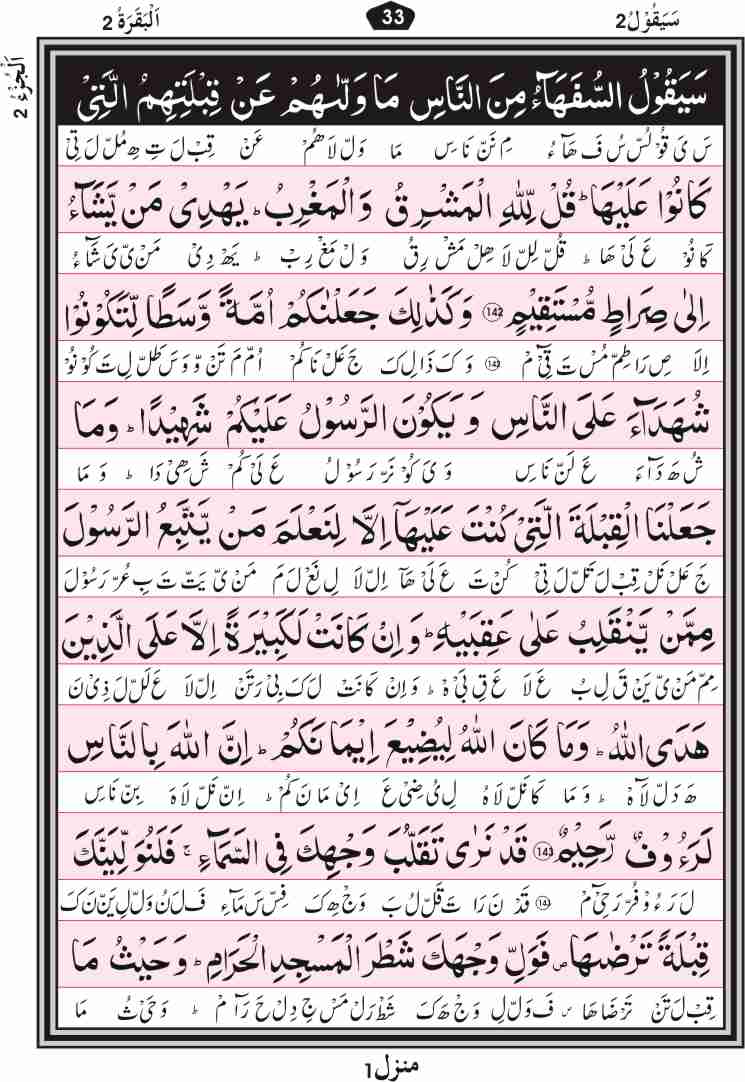 سَيَقُوْلُ2 33 اَلْبَقَرَةُ 2
اَلْجُزْءُ 2
سَيَقُوْلُ السُّفَهَآءُ مِنَ النَّاسِ مَا وَلّٰىهُمْ عَنْ قِبْلَتِهِمُ الَّتِيْ
سَ یَ قُوْ لُسْ سُ فَ هَآ ءُ مِ نَنْ نَا سِ مَا وَلْ لَاهُمْ عَنْ قِبْ لَ تِ هِ مُلْ لَ تِیْ
كَانُوْا عَلَيْهَا ؕ قُلْ لِّلّٰهِ الْمَشْرِقُ وَالْمَغْرِبُ ؕ يَهْدِيْ مَنْ يَّشَآءُ
كَا نُوْ عَ لَیْ هَا ؕ قُلْ لِلْ لَا هِلْ مَشْ رِقُ وَلْ مَغْ رِبْ ؕ يَهْ دِیْ مَنْ یْ یَ شَآءُ
اِلٰى صِرَاطٍ مُّسْتَقِيْمٍ ۝142 وَكَذٰلِكَ جَعَلْنٰكُمْ اُمَّةً وَّسَطًا لِّتَكُوْنُوْا
اِلَا صِ رَا طِمْ مُسْ تَ قِیْٓ مْ وَ كَ ذَا لِ كَ جَ عَلْ نَا كُمْ اُمْ مَ تَنْ وْ وَ سَ طَلْ لِ تَ كُوْ نُوْ
شُهَدَآءَ عَلَى النَّاسِ وَ يَكُوْنَ الرَّسُوْلُ عَلَيْكُمْ شَهِيْدًا ؕ وَمَا
شُ هَ دَآ ءَ عَ لَنْ نَا سِ وَ یَ كُوْ نَرْ رَ سُوْ لُ عَ لَیْ كُمْ شَ هِیْ دَا ؕ وَ مَا
جَعَلْنَا الْقِبْلَةَ الَّتِيْ كُنْتَ عَلَيْهَآ اِلَّا لِنَعْلَمَ مَنْ يَّتَّبِعُ الرَّسُوْلَ
جَ عَلْ نَلْ قِبْ لَ تَلْ لَ تِیْ كُنْ تَ عَ لَیْ هَآ اِلْ لَا لِ نَعْ لَ مَ مَنْ یْ یَتْ تَ بِ عُرْ رَ سُوْلَ
مِمَّنْ يَّنْقَلِبُ عَلٰى عَقِبَيْهِ ؕ وَ اِنْ كَانَتْ لَكَبِيْرَةً اِلَّا عَلَى الَّذِيْنَ
مِمْ مَنْ یْ یَنْ قَ لِ بُ عَ لَا عَ قِ بَیْ هْ ؕ وَ اِنْ كَا نَتْ لَ كَ بِیْ رَ تَنْ اِلْ لَا عَ لَلْ لَ ذِیْ نَ
هَدَى اللّٰهُ ؕ وَمَا كَانَ اللّٰهُ لِيُضِيْعَ اِيْمَا نَكُمْ ؕ اِنَّ اللّٰهَ بِالنَّاسِ
هَ دَلْ لَآ هْ ؕ وَ مَا كَا نَلْ لَا هُ لِ یُ ضِیْ عَ اِیْ مَا نَ كُمْ ؕ اِنْ نَلْ لَا هَ بِنْ نَاسِ
لَرَءُوْفٌ رَّحِيْمٌ ۝143 قَدْ نَرٰى تَقَلُّبَ وَجْهِكَ فِي السَّمَآءِ ۚ فَلَنُوَلِّيَنَّكَ
لَ رَ ءُ وْ فُرْ رَ حِیْٓ مْ قَدْ نَ رَا تَ قَلْ لُ بَ وَجْ هِ كَ فِسْ سَ مَآءِ فَ لَ نُ وَلْ لِ یَنْ نَ كَ
قِبْلَةً تَرْضٰىهَا ص فَوَلِّ وَجْهَكَ شَطْرَ الْمَسْجِدِ الْحَرَامِ ؕ وَحَيْثُ مَا
قِبْ لَ تَنْ تَرْضَا هَا ص فَ وَلْ لِ وَجْ هَ كَ شَطْ رَلْ مَسْ جِ دِلْ حَ رَآ مْ ؕ وَ حَیْ ثُ مَا
منزل1